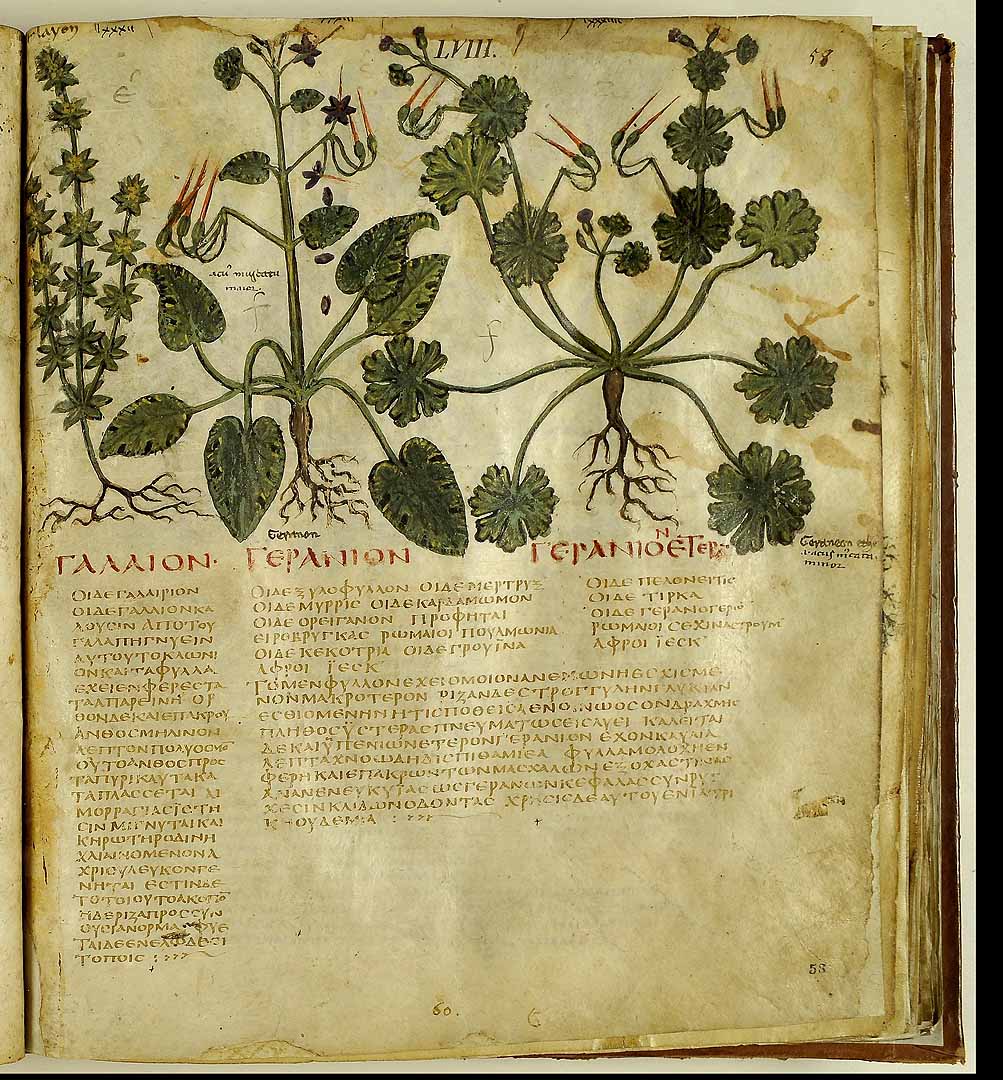 LVIII.
58
acus muscata
maior.
Geranion
ΓΑΛΛΙΟΝ· ΓΕΡΑΝΙΟΝ ΓΕΡΑΝΙΟΝ ΕΤΕΡ
minor
ΟΙΔΕ ΓΑΛΑΙΡΙΟΝ
ΟΙΔΕ ΓΑΛΛΙΟΝ ΚΑ
ΛΟΥCΙΝ ΑΠΟ ΤΟΥ
ΓΑΛΑ ΠΗΓΝΥΕΙΝ
ΑΥΤΟΥ ΤΟ ΚΛΩΝΙ
ΟΝ ΚΑΙ ΤΑ ΦΥΛΛΑ
ΕΧΕΙ ΕΜΦΕΡΕCΤΑ
ΤΑ ΑΠΑΡΕΙΝΗ ΟΡ
ΘΟΝ ΔΕ ΚΑΙ ΕΠ ΑΚΡΟΥ
ΑΝΘΟC ΜΗΛΙΝΟΝ
ΛΕΠΤΟΝ ΠΟΛΥΟCΜΟ
ΟΥ ΤΟ ΑΝΘΟC ΠΡΟC
ΤΑ ΠΥΡΙΚΑΥΤΑ ΚΑ
ΤΑΠΛΑCCΕΤΑΙ ΑΙ
ΜΟΡΡΑΓΙΑC ΙCΤΗ
CΙΝ ΜΙΓΝΥΤΑΙ ΚΑΙ
ΚΗΡΩΤΗ ΡΟΔΙΝΗ
ΧΛΙΑΙΝΟΜΕΝΟΝ Α
ΧΡΙ ΟΥ ΛΕΥΚΟΝ ΓΕ
ΝΗΤΑΙ ΕCΤΙΝ ΔΕ
ΤΟ ΤΟΙΟΥΤΟ ΑΚΟΠΟ
Η ΔΕ ΡΙΖΑ ΠΡΟC CΥΝ
ΟΥCΙΑΝ ΟΡΜΑ ΦΥΕ
ΤΑΙ ΔΕ ΕΝ ΕΛΩΔΕCΙ
ΤΟΠΟΙC :
ΟΙΔΕ ΞΥΛΟΦΥΛΛΟΝ ΟΙΔΕ ΜΕΡΤΡΥΞ
ΟΙΔΕ ΜΥΡΡΙC ΟΙΔΕ ΚΑΡΔΑΜΩΜΟΝ
ΟΙΔΕ ΟΡΕΙΓΑΝΟΝ ΠΡΟΦΗΤΑΙ
ΕΙΡΟΒΡΥΓΚΑC ΡΩΜΑΙΟΙ ΠΟΥΛΜΩΝΙΑ
ΟΙΔΕ ΚΕΚΟΤΡΙΑ ΟΙΔΕ ΓΡΟΥΪΝΑ
ΑΦΡΟΙ ΪΕCΚ
ΟΙΔΕ ΠΕΛΟΝΕΙΤΙC
ΟΙΔΕ ΤΙΡΚΑ
ΟΙΔΕ ΓΕΡΑΝΟΓΕΡΟ
ΡΩΜΑΙΟΙ CΕΧΙΝΑCΤΡΟΥΜ
ΑΦΡΟΙ ΪΕCΚ
ΤΟ ΜΕΝ ΦΥΛΛΟΝ ΕΧΕΙ ΟΜΟΙΟΝ ΑΝΕΜΩΝΗ ΕCΧΙCΜΕ
ΝΟΝ ΜΑΚΡΟΤΕΡΟΝ ΡΙΖΑΝ ΔΕ CΤΡΟΓΓΥΛΗΝ ΓΛΥΚΙΑΝ
ΕCΘΙΟΜΕΝΗΝ ΗΤΙC ΠΟΘΕΙCΑ ΕΝ ΟΙΝΩ ΟCΟΝ ΔΡΑΧΜΗC
ΠΛΗΘΟC ΫCΤΕΡΑC ΠΝΕΥΜΑΤΩCΕΙC ΛΥΕΙ ΚΑΛΕΙΤΑΙ
ΔΕ ΚΑΙ ΫΠ ΕΝΙΩΝ ΕΤΕΡΟΝ ΓΕΡΑΝΙΟΝ ΕΧΟΝ ΚΑΥΛΙΑ
ΛΕΠΤΑ ΧΝΟΩΔΗ ΔΙCΠΙΘΑΜΙΕΑ ΦΥΛΛΑ ΜΟΛΟΧΗ ΕΝ
ΦΕΡΗ ΚΑΙ ΕΠ ΑΚΡΩΝ ΤΩΝ ΜΑCΧΑΛΩΝ ΕΞΟΧΑC ΤΙΝΑC
ΑΝΑΝΕΝΕΥΚΥΙΑC ΩC ΓΕΡΑΝΩΝ ΚΕΦΑΛΑC CΥΝ ΡΥΓ
ΧΕCΙΝ Η ΚΥΝΩΝ ΟΔΟΝΤΑC ΧΡΗCΙC ΔΕ ΑΥΤΟΥ ΕΝ ΙΑΤΡΙ
ΚΗ ΟΥΔΕΜΙΑ :
58
60.